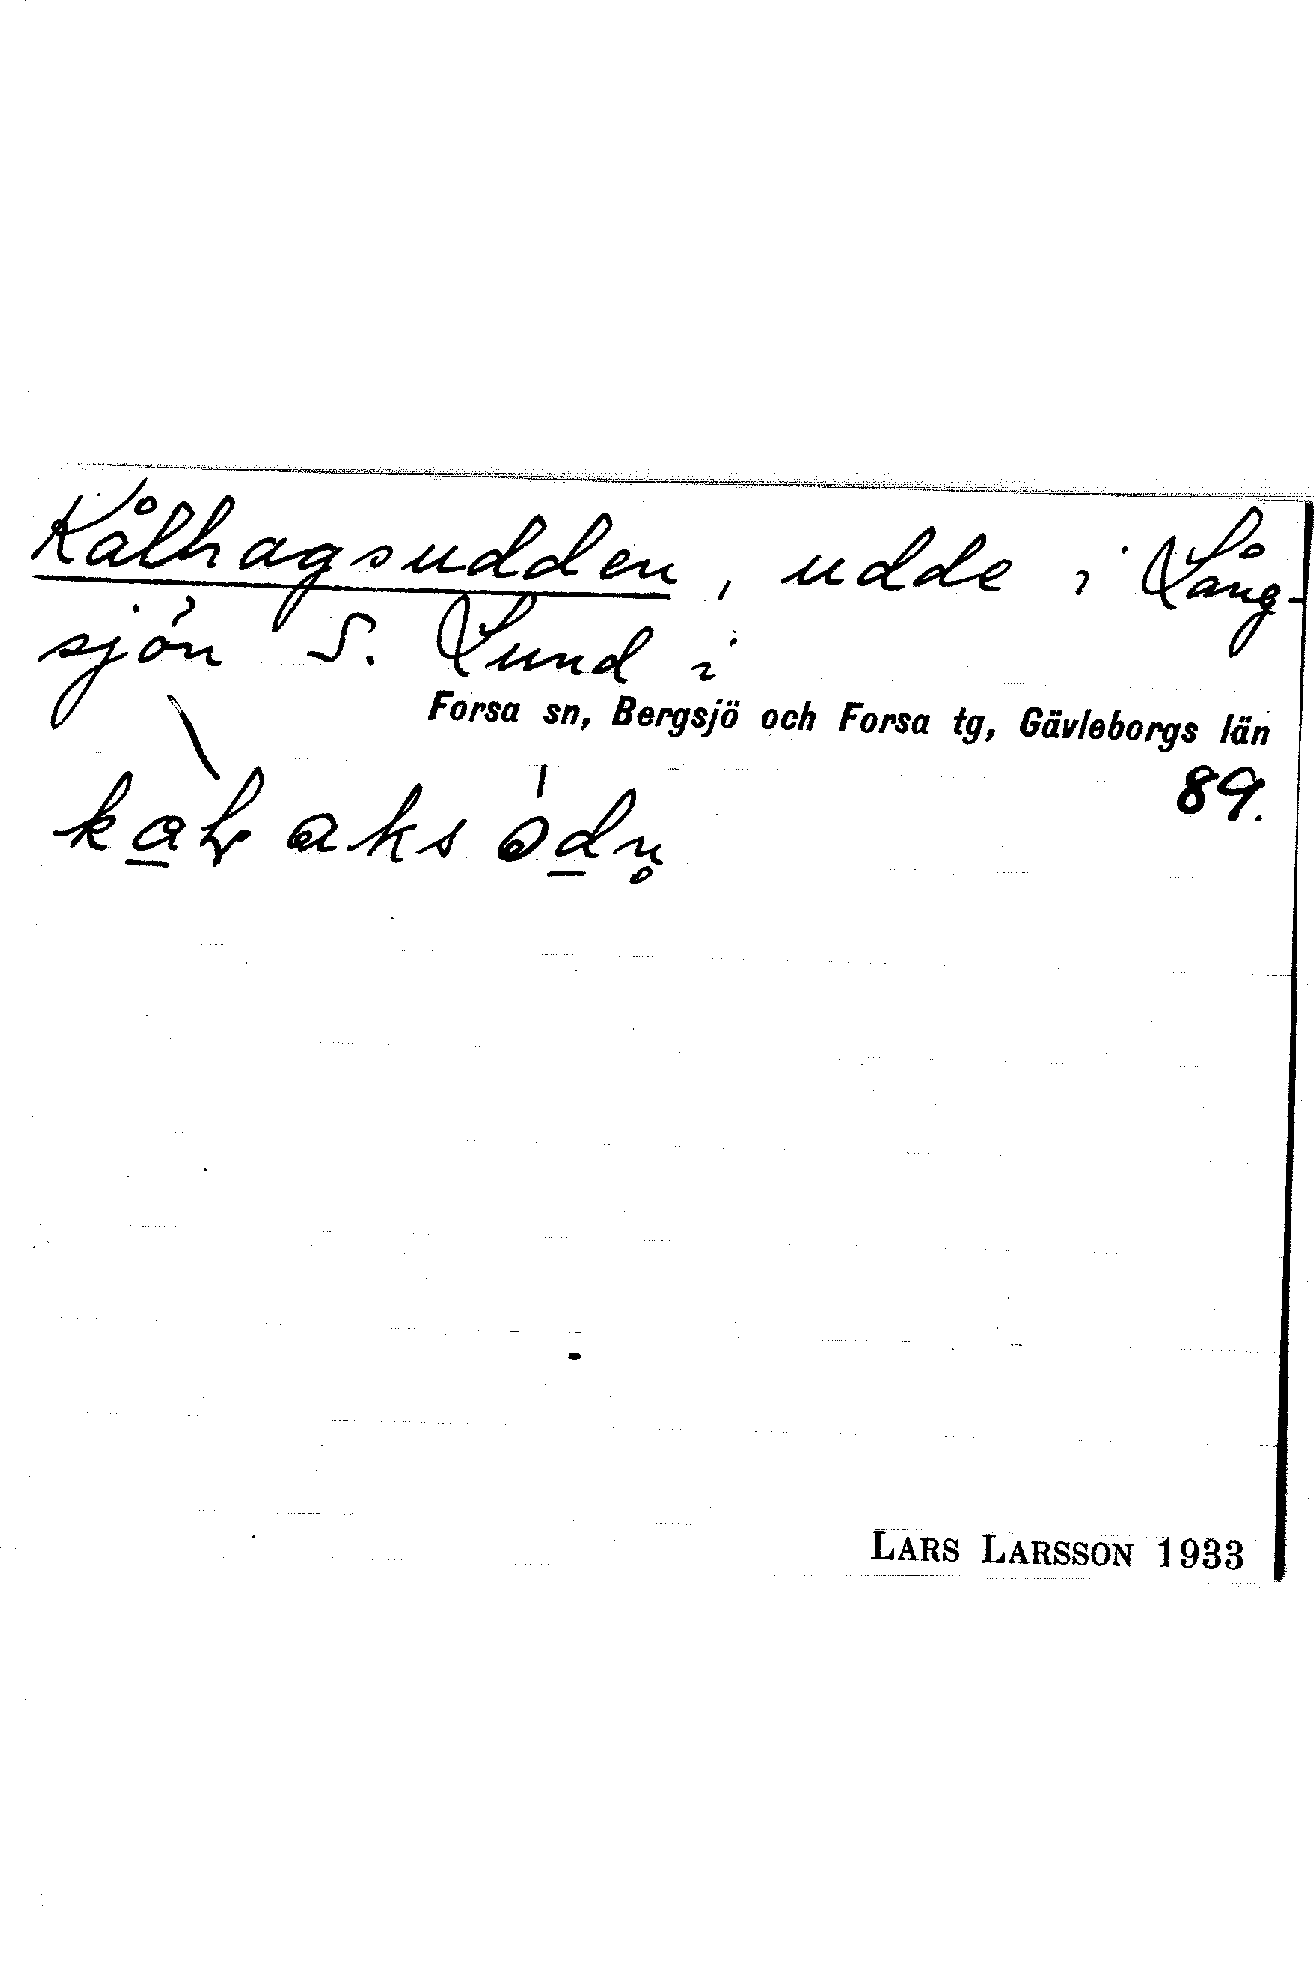 Kålhagsudden, udde i Lång-
sjön S. Lund i
Forsa sn, Bergsjö och Forsa tg, Gävleborgs län
89.
LARS LARSSON 1933